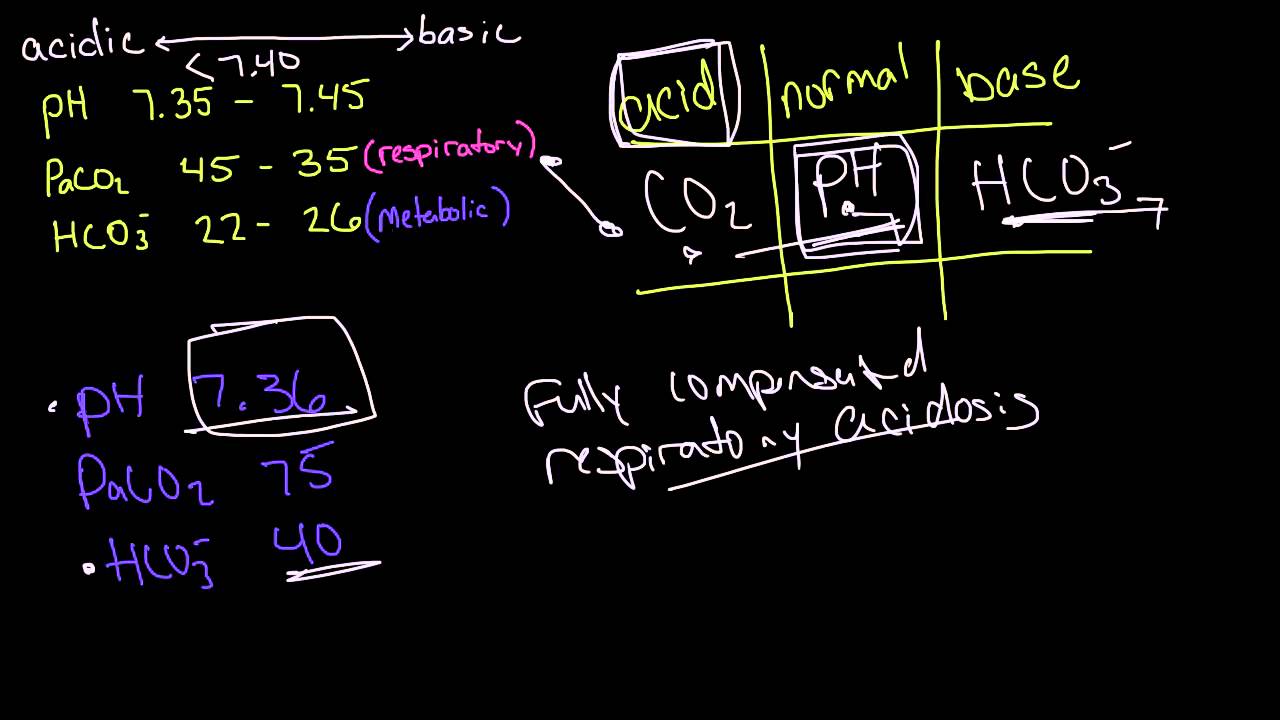 acidic basic
< 7.40
pH 7.35 - 7.45
PaCO2 45 - 35 (respiratory)
HCO3- 22 - 26 (Metabolic)
acid normal base
CO2 PH HCO3-
pH 7.36
PaCO2 75
HCO3- 40
Fully compensated
respiratory acidosis